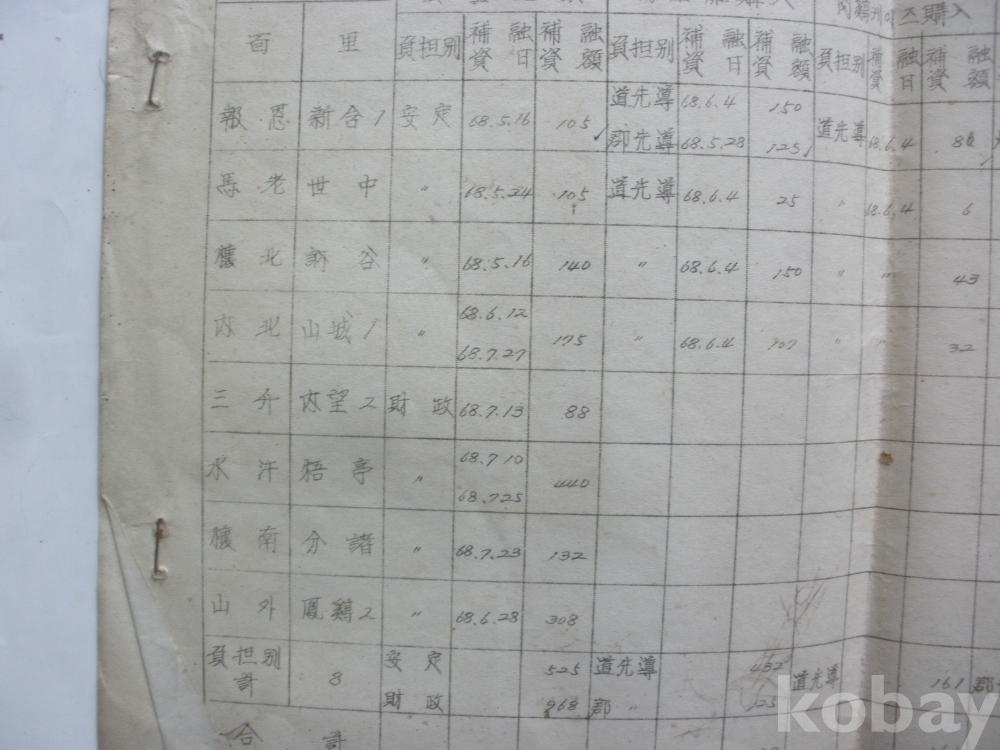 스購入
面 里 負担别 補融資日 補融資額 負担別 補融資日 補融資額 負担别 補融資日 補融資額
道先導 68.6.4 150
報恩 新含1 安定 68.5.16 105 道先導 68.6.4
郡先導 68.5.28 125
馬老 世中 〃 68.5.24 105 道先導 68.6.4 25 〃 68.6.4 6
懷北 訥谷 〃 68.5.16 140 〃 68.6.4 150 〃 〃 43
68.6.12
内北 山城1 〃 175 〃 68.6.4 107 〃 〃 32
68.7.27
三升 内望2 財政 68.7.13 88
68.7.10
水汗 梧亭 〃 440
68.7.25
懷南 分諸 〃 68.7.23 132
山外 鳳鷄2 〃 68.6.28 308
負担别計 8 安定 525 道先導 432 道先導 161 郡
財政 968 郡 〃 125
合計
kobay